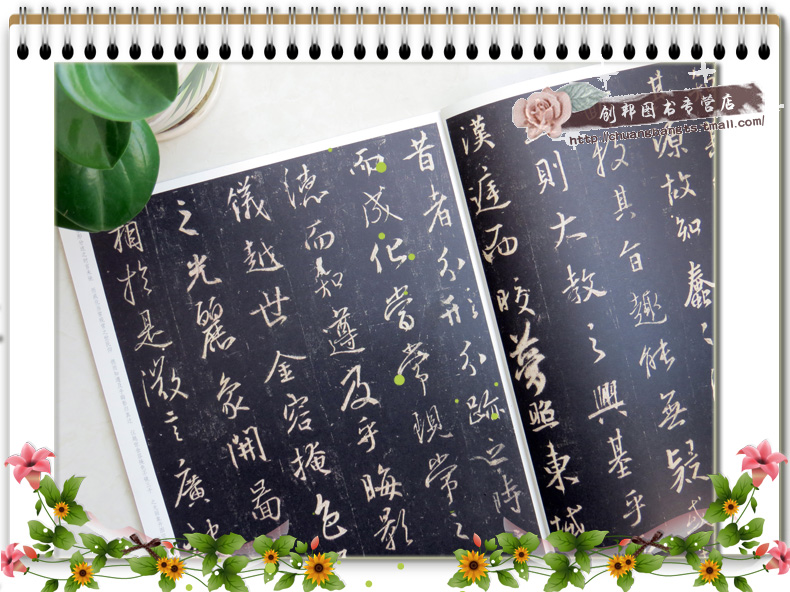 创邦图书专营店
http://chuangbangts.tmall.com/
其源故知蠢
投其旨趣能無疑或
則大教之興基乎
漢庭而皎夢照東域
昔者分形分跡之時
而成化當常現常之
德而知遵及乎晦影
儀越世金容掩色
之光麗象開圖
相於是微言廣被